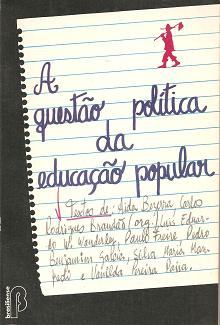 A
questão política
da
educação popular
Textos de: Aida Bezerra Carlos
Rodrigues Brandão (org.) Luis Eduar-
do W. Wanderley, Paulo Freire, Pedro
Benjamim Garcia, Silvia Maria Man-
fredi e Vanilda Pereira Paiva.
brasiliense